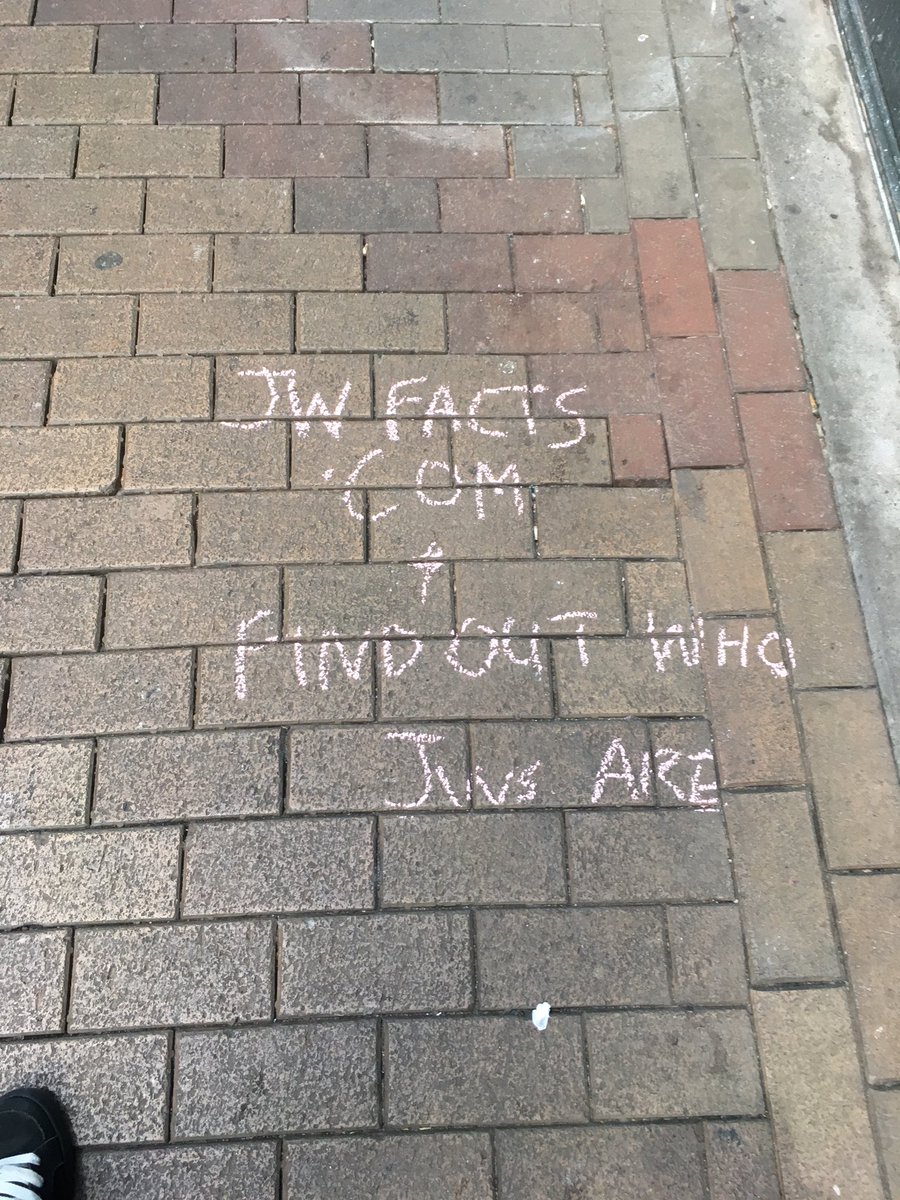 JW FACTS
.COM
↑
FIND OUT WHO
JWs ARE